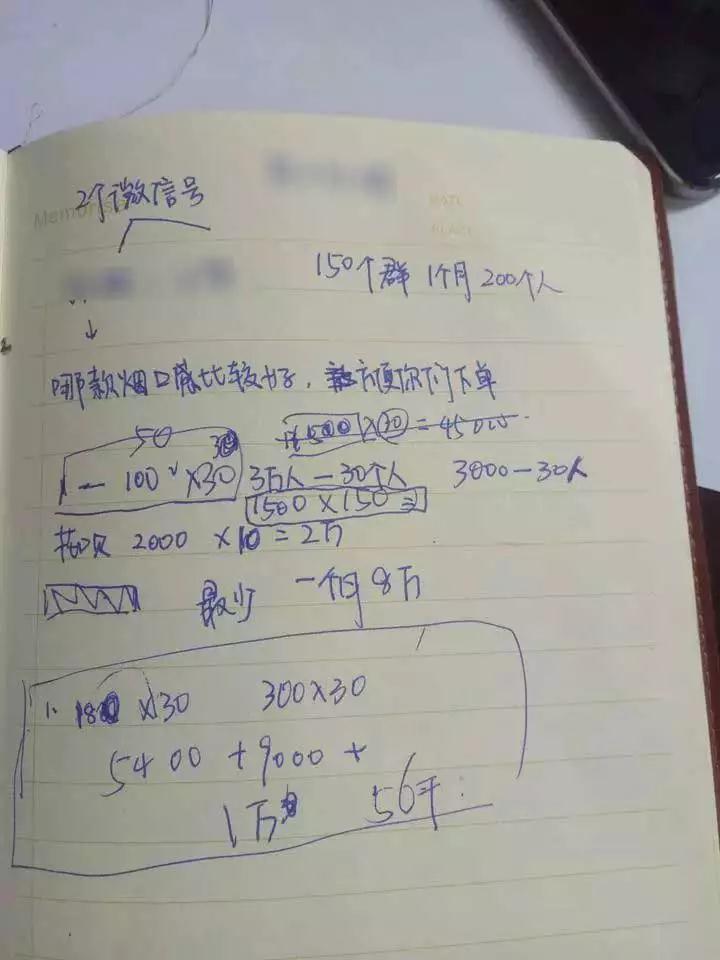 2个微信号
Memo
DATE
PLACE
150个群 1个月 200个人
哪款烟口感比较好，方便你们下单
50 1500×30=45000
1—100×30 3万人—30个人 3000—30人
1500×150=
2000×10=2万
最少 一个月8万
1. 180×30 300×30
5400+9000+
1万